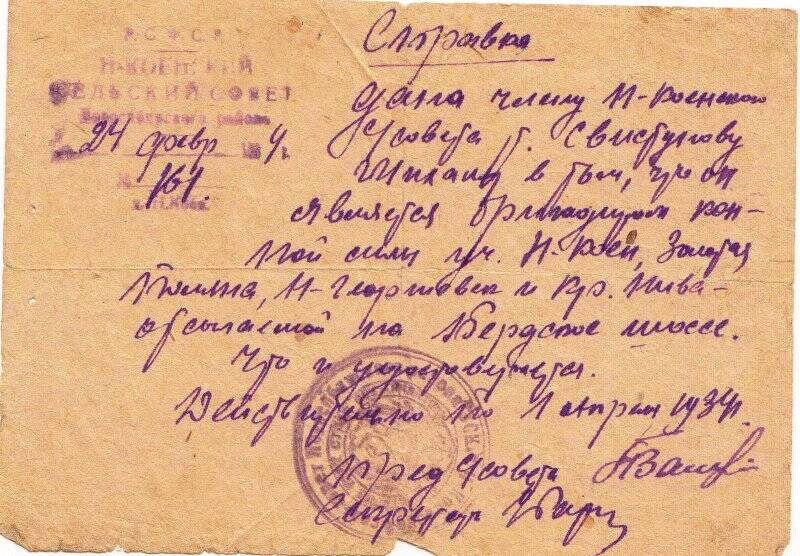 Р.С.Ф.С.Р.
Н-КОЕНСКИЙ
СЕЛЬСКИЙ СОВЕТ
района
24 февр 1934 г.
№ 161.
Справка
Дана члену Н-Коенского
с/совета т. Свистунову
Михаилу в том, что он
является бригадиром кон-
ной силы уч. Н-Коен, Золотая
Поляна, Н-Георгиевск и Кр. Нива
отсылаемой на Бердское шоссе.
Что и удостоверяется.
Действительно по 1 апреля 1934 г.
Пред с/совета
Секретарь